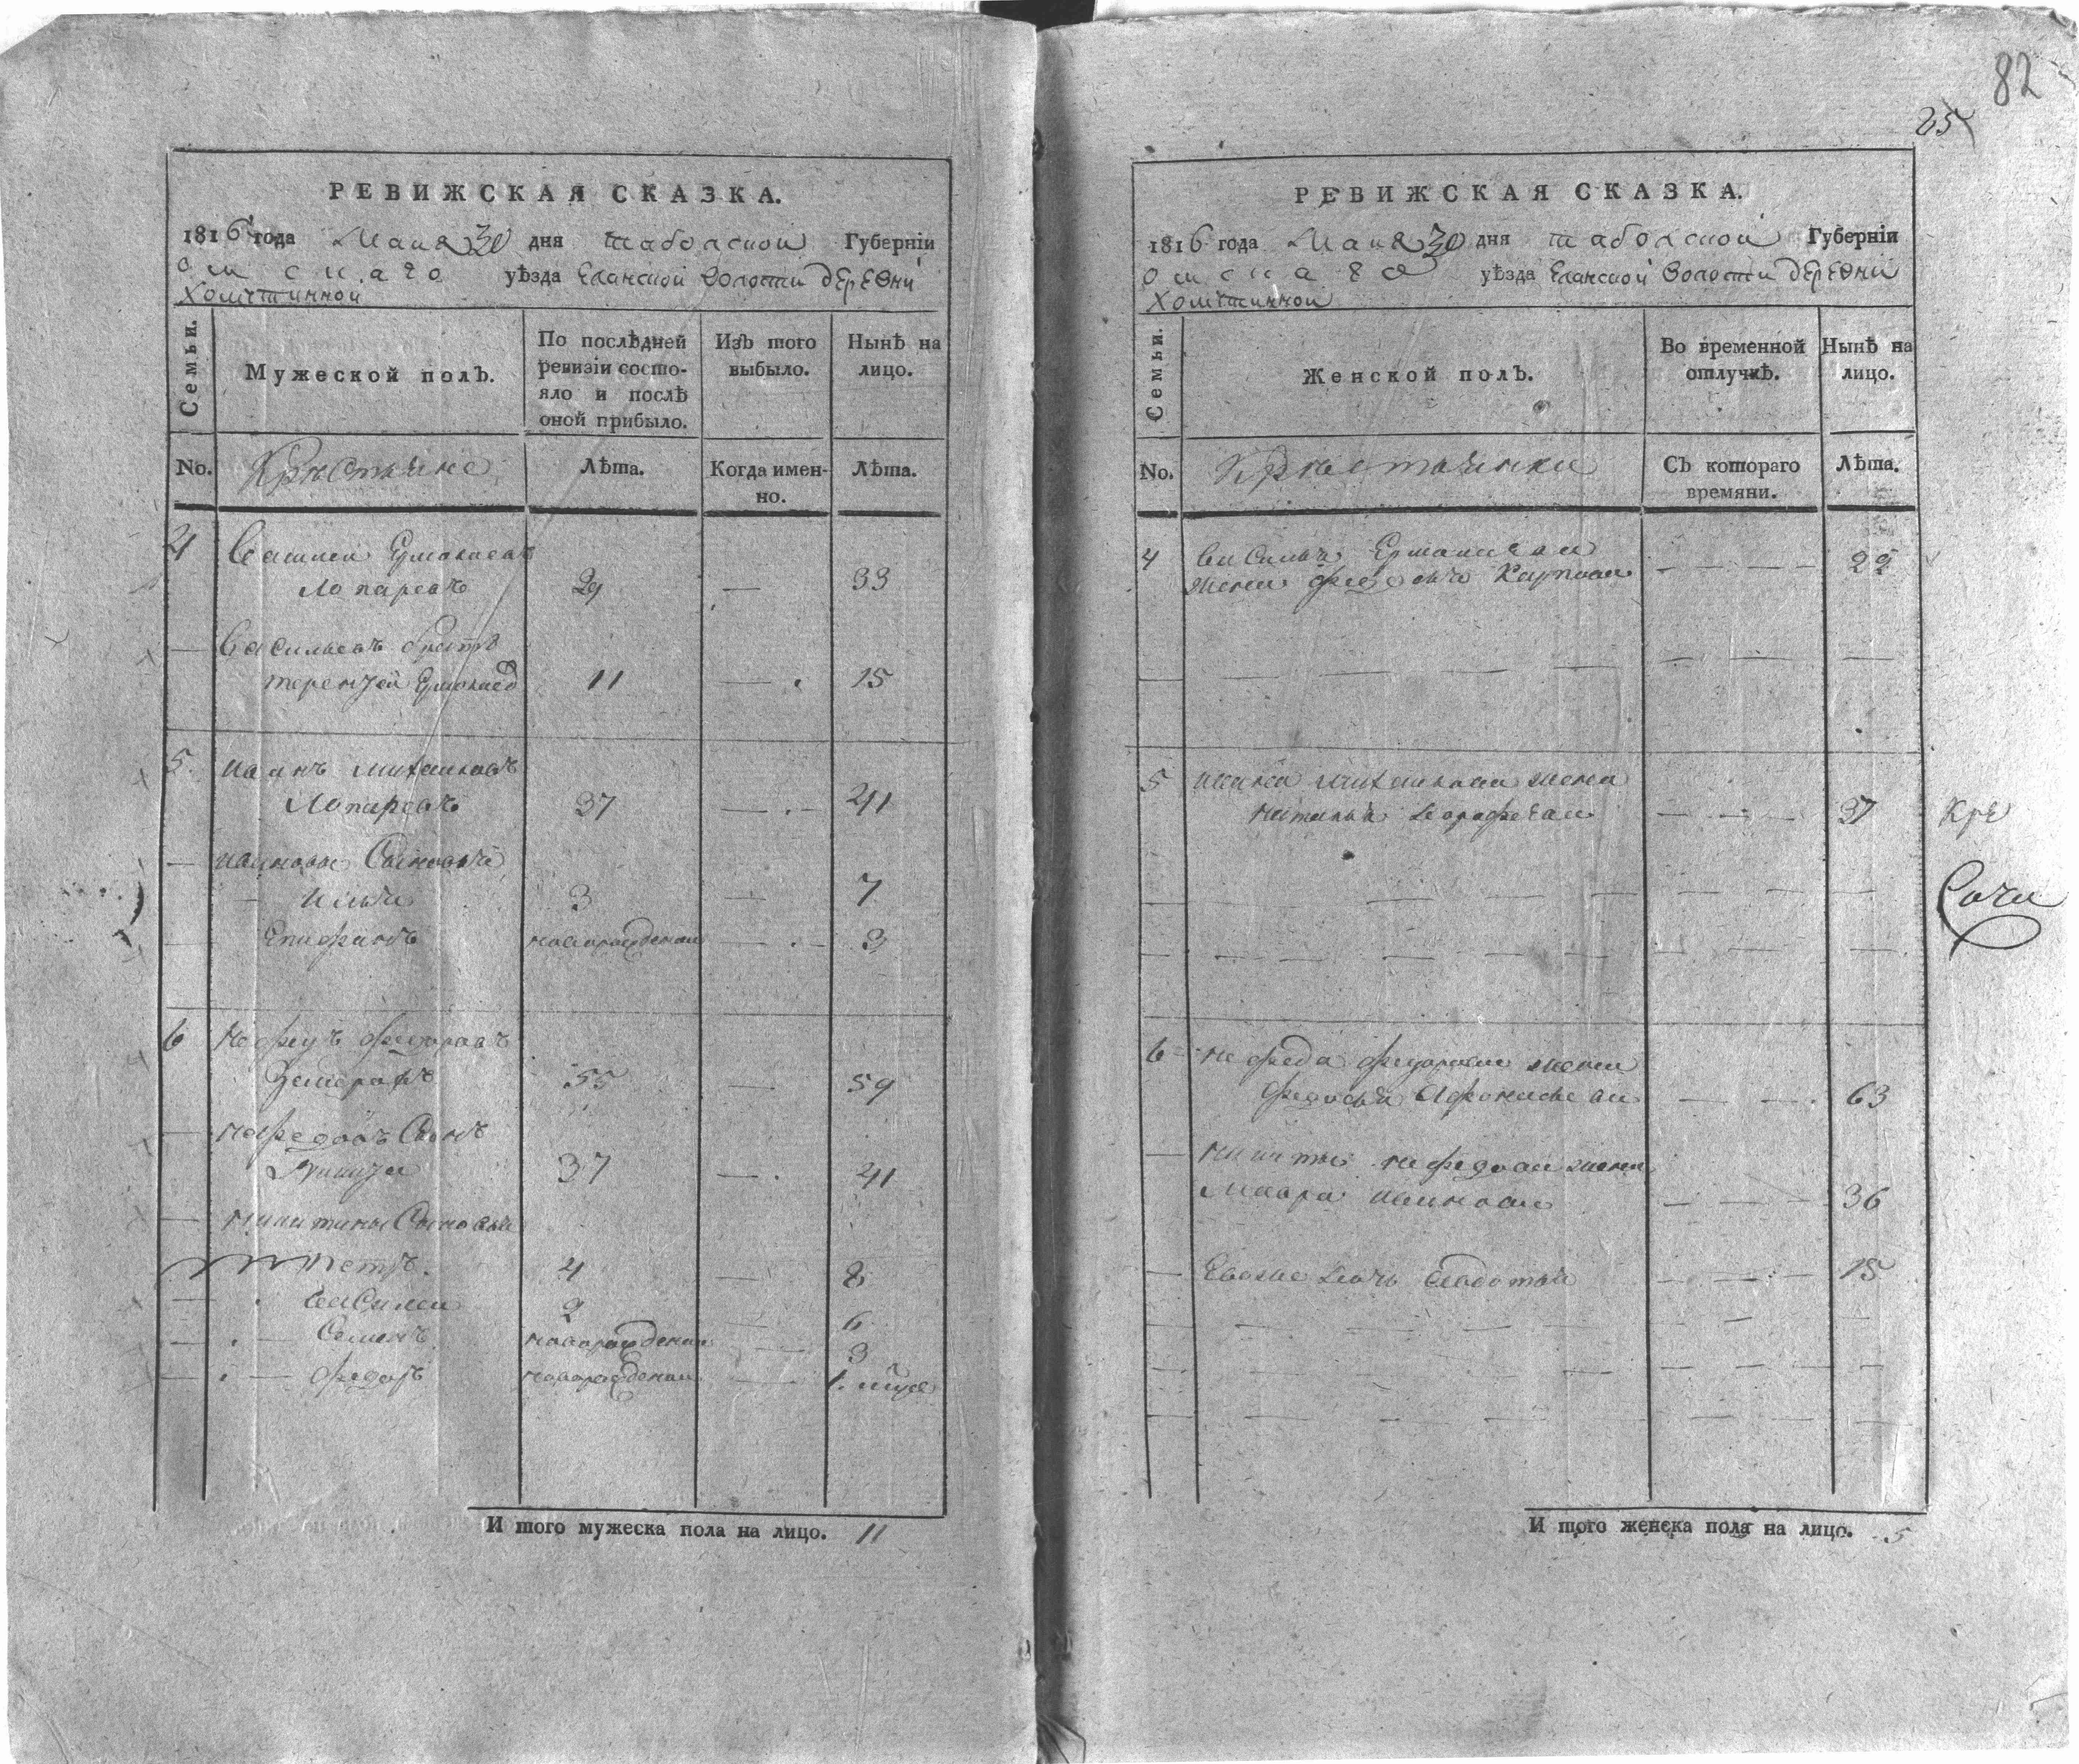 82
25
РЕВИЖСКАЯ СКАЗКА.
1816 года Маия 30 дня таболской Губерніи
омскаго уѣзда Еланской волости дЕрЕвни
Хомутинной
Семьи.
Мужеской полъ.
По послѣдней ревизіи состо-
яло и послѣ
оной прибыло.
Изъ того
выбыло.
Нынѣ на
лицо.
No.
Крестьяне
Лѣта.
Когда имен-
но.
Лѣта.
4 Василей Ермолаевъ
Лопаревъ 29 — 33
— Васильевъ братъ
терентей Ермолаев 11 — 15
5 иванъ михаиловъ
Лопаревъ 37 — 41
— ивановы Сыновья
илья 3 — 7
— Епифанъ новорожденои — 3
6 нефедъ федоровъ
55 — 59
— нефедовъ Сынъ
Никита 37 — 41
— никитины Сыновьи
петръ 4 — 8
— василеи 2 6
— Семенъ новорожденои — 3
— федоръ новорожденои — 1.
И того мужеска пола на лицо. 11
РЕВИЖСКАЯ СКАЗКА.
1816 года Маия 30 дня таболской Губерніи
омскаго уѣзда Еланской волости дЕрЕвни
Хомутинной
Семьи.
Женской полъ.
Во временной
отлучкѣ.
Нынѣ на
лицо.
No.
Крестьянки
Съ котораго
времяни.
Лѣта.
4 Василья Ермолаева
жена федосья Карпова — 29
5 ивана михаилова жена
наталья дорофеева — 37
Кре
Сочи
6 нефеда федорова жена
федосья Афонасьева — 63
— никиты нефедова жена
Мавра иванова — 36
— Ево же дочь — 15
И того женска пола на лицо. 5